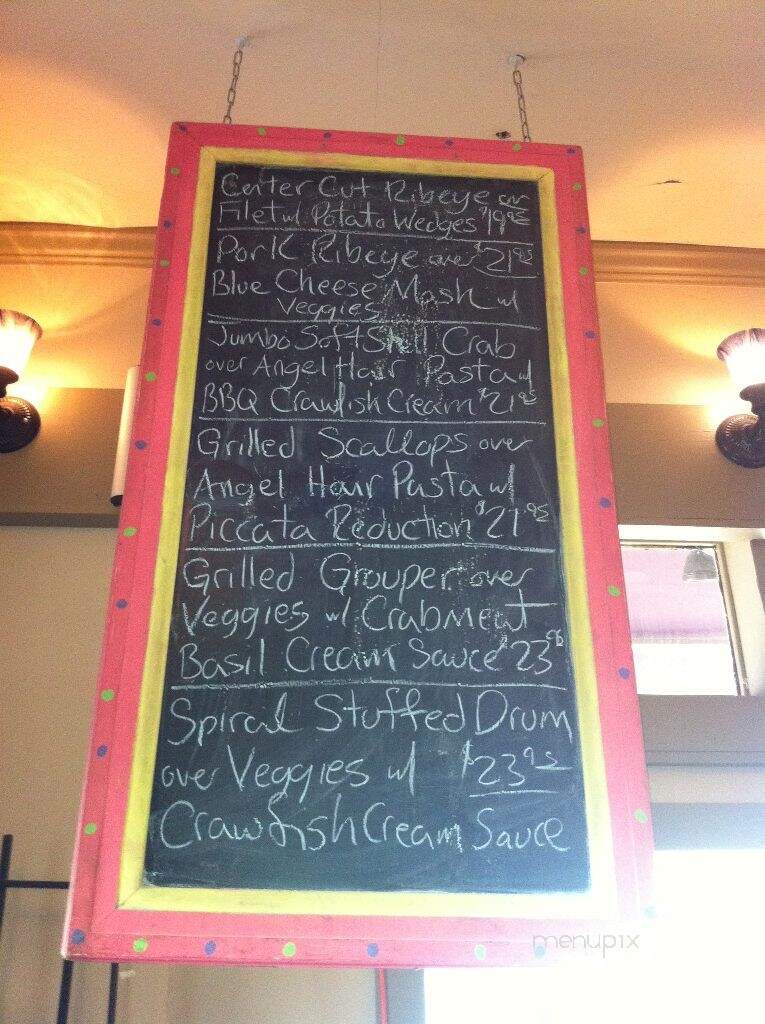 Center Cut Ribeye or
Filet w/ Potato Wedges $19.95
Pork Ribeye over $21.95
Blue Cheese Mash w/
Veggies
Jumbo Soft Shell Crab
over Angel Hair Pasta w/
BBQ Crawfish Cream $21.95
Grilled Scallops over
Angel Hair Pasta w/
Piccata Reduction $21.95
Grilled Grouper over
Veggies w/ Crabmeat
Basil Cream Sauce $23.95
Spiral Stuffed Drum
over Veggies w/ $23.95
Crawfish Cream Sauce
menupix